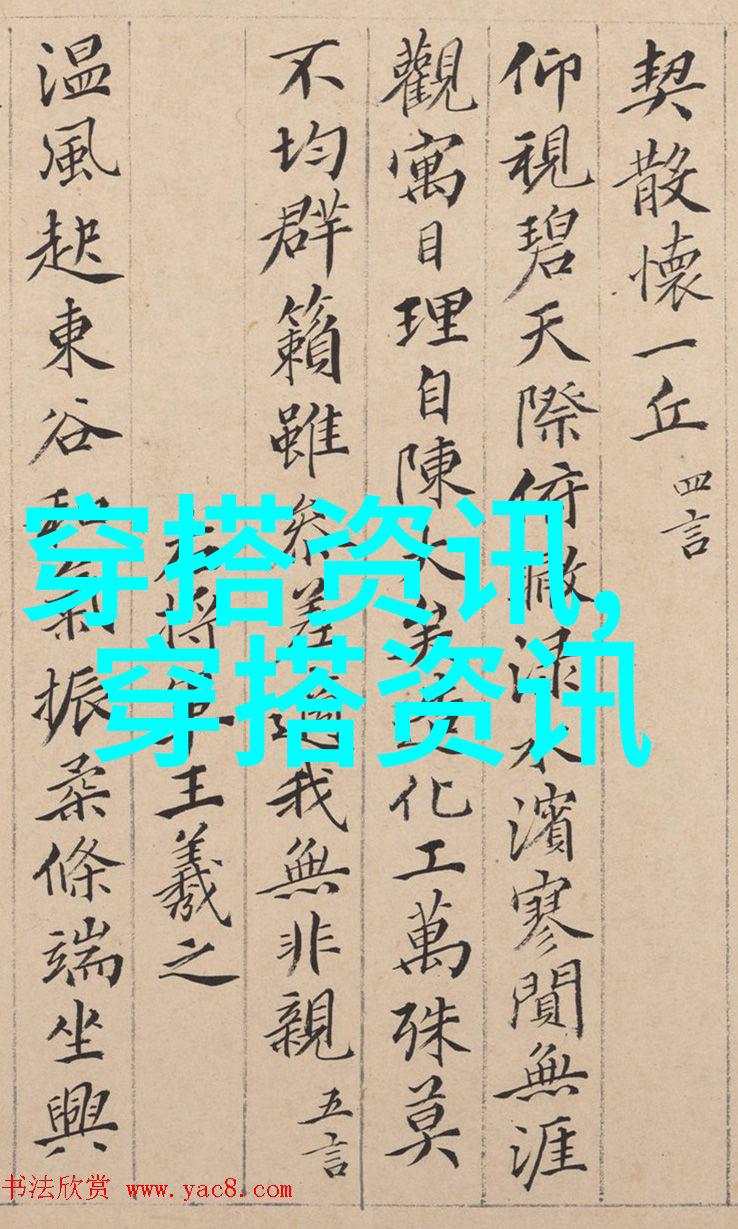 契散懷一丘 四言
仰視碧天際俯淥水濱寥無涯
觀寓目理自陳大矣化工萬殊莫
不均群籟雖參差我無非親 五言
右將王羲之
温風起東谷和氣振柔條端坐興
穿搭资讯,
穿搭资讯
书法欣赏 www.yac8.com